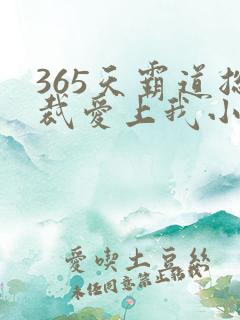 365天霸道总
裁爱上我小
爱喫土豆丝
未经同意禁止转载